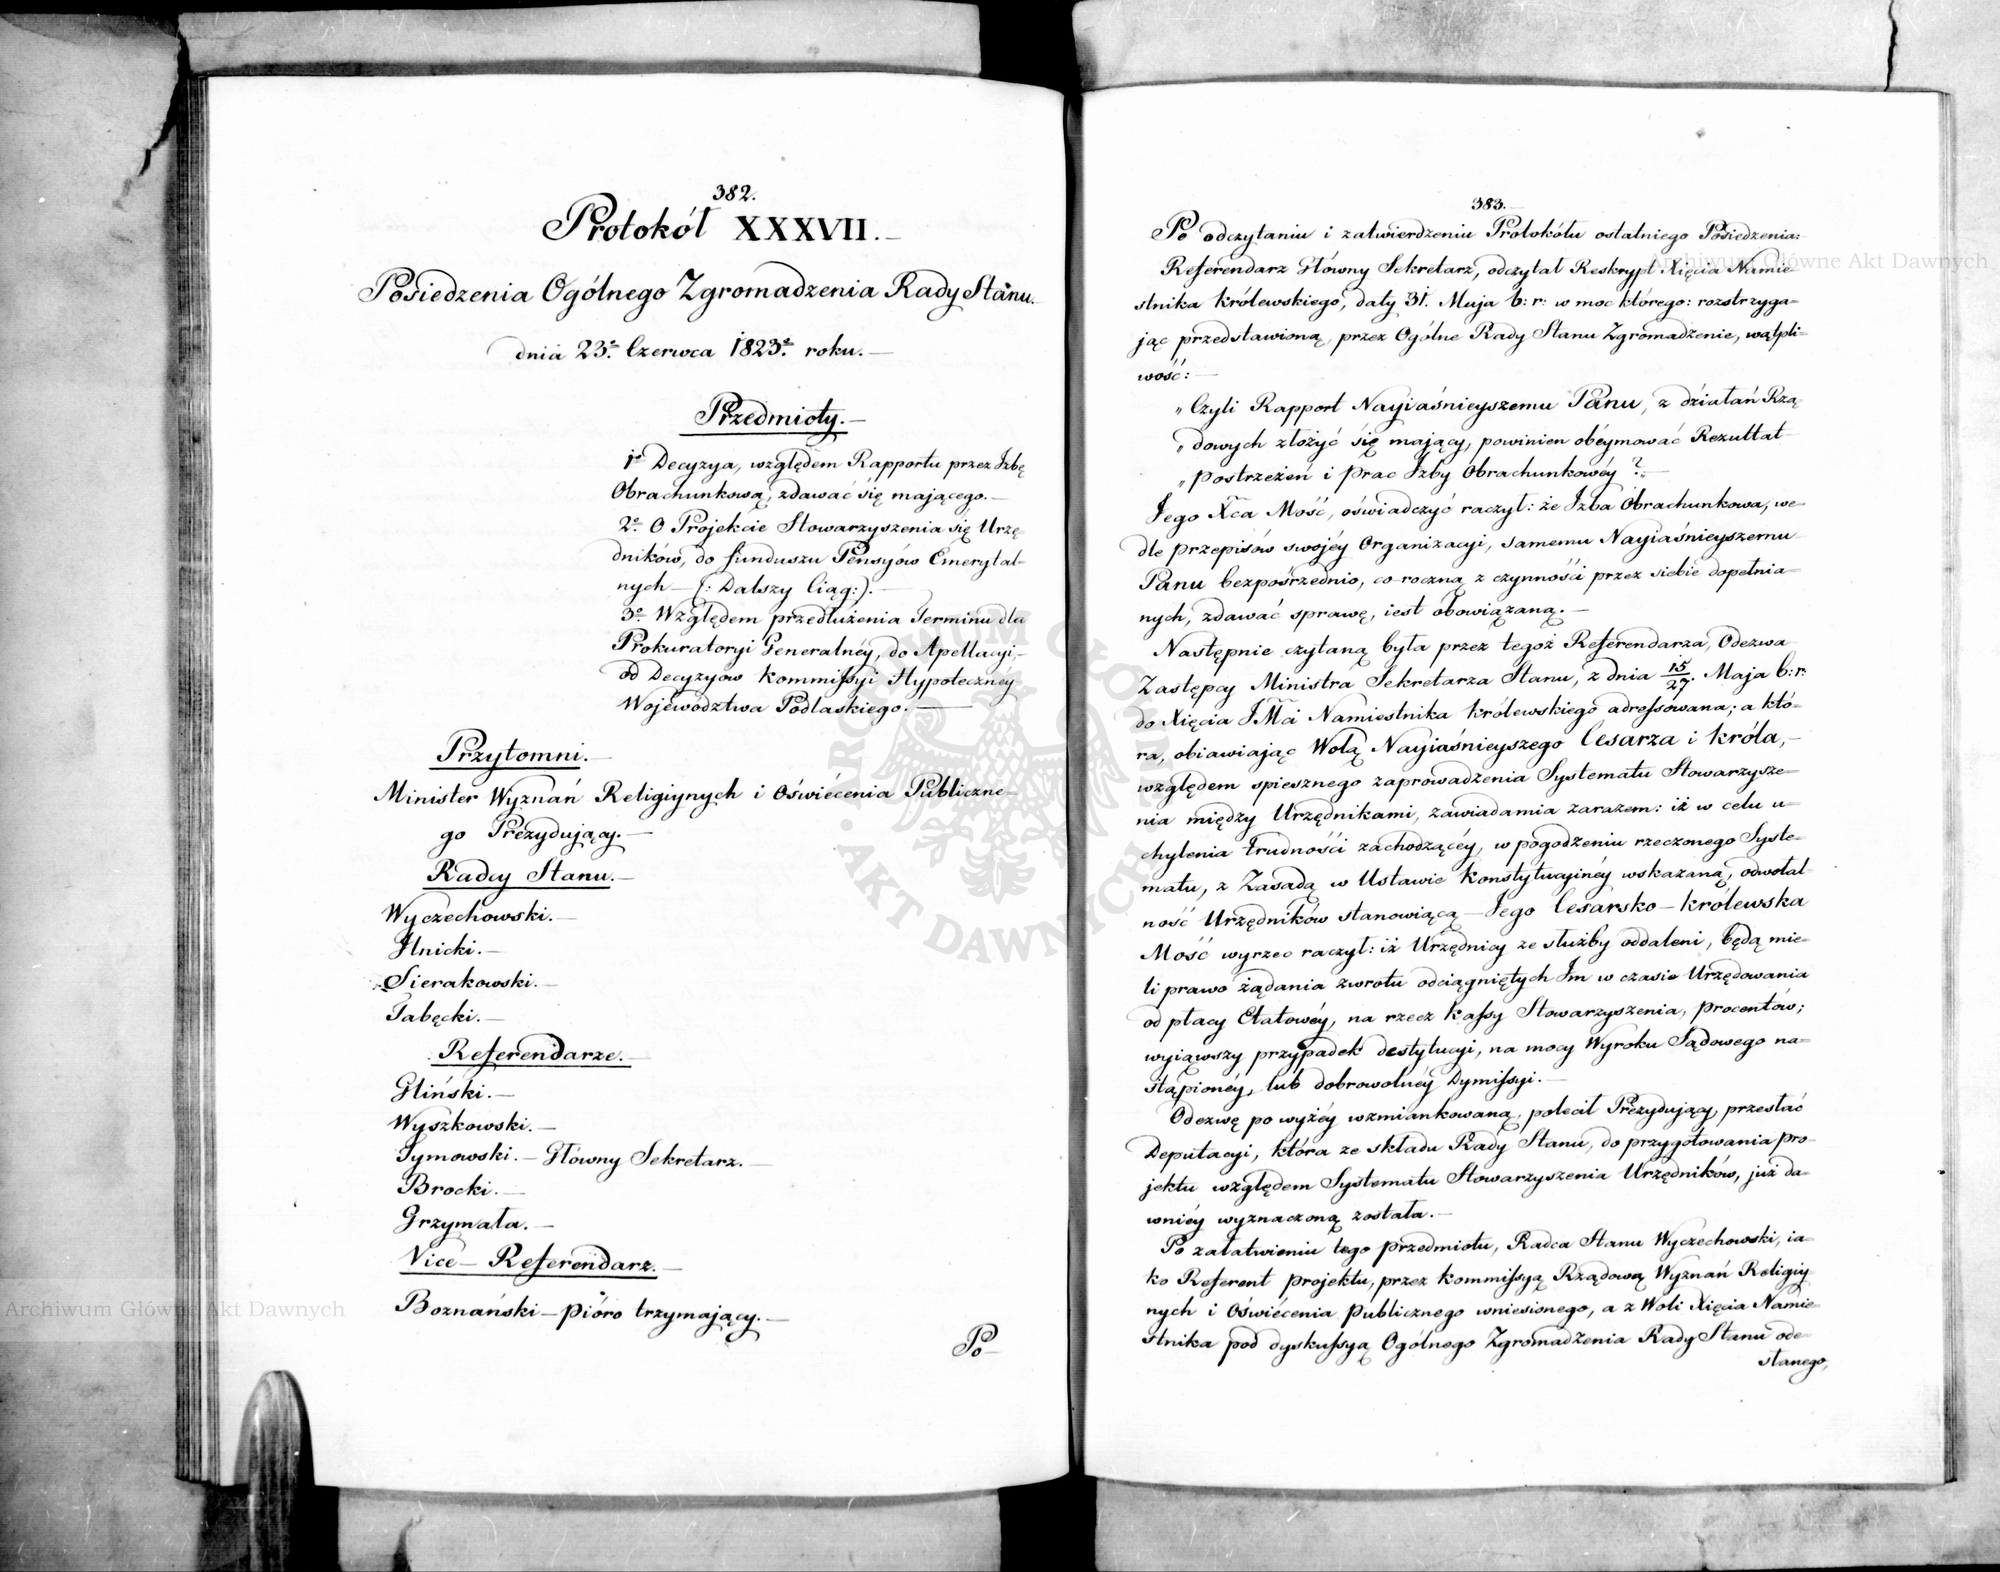 382.
Protokół XXXVII.—
Posiedzenia Ogólnego Zgromadzenia Rady Stanu.
dnia 23º Czerwca 1823º roku.—
Przedmioty.—
1º Decyzya, względem Rapportu przez Izbę
Obrachunkową, zdawać się mającego.—
2º O Projekcie Stowarzyszenia się Urzę-
dników, do funduszu Pensyów Emerytal-
nych — (: Dalszy Ciąg:).—
3º Względem przedłużenia Terminu dla
Prokuratoryi Generalnéy, do Apellacyi,—
od Decyzyów Kommissyi Hypoteczney
Województwa Podlaskiego.—
Przytomni.—
Minister Wyznań Religiynych i Oświécenia Publiczne-
go Prezydujący.—
Radcy Stanu.—
Wyczechowski.—
Ilnicki.—
Sierakowski.—
Tabęcki.—
Referendarze.—
Gliński.—
Wyszkowski.—
Tymowski.— Główny Sekretarz.—
Brocki.—
Grzymała.—
Vice-Referendarz.—
Boznański — pióro trzymający.—
Po—
383.
Po odczytaniu i zatwierdzeniu Protokółu ostatniego Posiedzenia:
Referendarz Główny Sekretarz, odczytał Reskrypt Xięcia Namie-
stnika Królewskiego, daty 31. Maja b: r: w moc którego: rozstrzyga-
jąc przedstawioną, przez Ogólne Rady Stanu Zgromadzenie, wątpli-
wość:—
„Czyli Rapport Nayiaśnieyszemu Panu, z działań Rzą
„dowych złożyć się mający, powinien obéymować Rezultat
„postrzeżeń i prac Izby Obrachunkowéy?„—
Jego Xca Mość, oświadczyć raczył: że Izba Obrachunkowa, we-
dle przepisów swojéy Organizacyi, samemu Nayiaśnieyszemu
Panu bezpośrzednio, co-roczną z czynności przez siebie dopełnia-
nych, zdawać sprawę, iest obowiązaną.—
Następnie czytaną była przez tegoż Referendarza, Odezwa
Zastępcy Ministra Sekretarza Stanu, z dnia 15/27. Maja b: r:
do Xięcia JMci Namiestnika Królewskiego adressowana; a któ-
ra, obiawiając Wolą Nayiaśnieyszego Cesarza i Króla,—
względem spiesznego zaprowadzenia Systematu Stowarzysze-
nia między Urzędnikami, zawiadamia zarazem: iż w celu u-
chylenia trudności zachodzącéy, w pogodzeniu rzeczonego Syste-
matu, z Zasadą w Ustawie Konstytucyinéy wskazaną, odwołal-
ność Urzędników stanowiącą — Jego Cesarsko-Królewska
Mość wyrzec raczył: iż Urzędnicy ze służby oddaleni, będą mie-
li prawo żądania zwrotu odciągniętych Im w czasie Urzędowania
od płacy Etatowéy, na rzecz Kassy Stowarzyszenia, procentów;
wyiąwszy przypadek destytucyi, na mocy Wyroku Sądowego na-
stąpionéy, lub dobrowolnéy Dymissyi.—
Odezwę po wyżéy wzmiankowaną, polecił Prezydujący, przesłać
Deputacyi, która ze składu Rady Stanu, do przygotowania pro-
jektu względem Systematu Stowarzyszenia Urzędników, już da-
wniéy wyznaczoną została.—
Po załatwieniu tego przedmiotu, Radca Stanu Wyczechowski, ia-
ko Referent projektu, przez Kommissyą Rządową Wyznań Religiy
nych i Oświécenia Publicznego wniesionego, a z Woli Xięcia Namie-
stnika pod dyskussyą Ogólnego Zgromadzenia Rady Stanu ode-
słanego,
Archiwum Główne Akt Dawnych
Archiwum Główne Akt Dawnych
ARCHIWUM GŁÓWNE AKT DAWNYCH